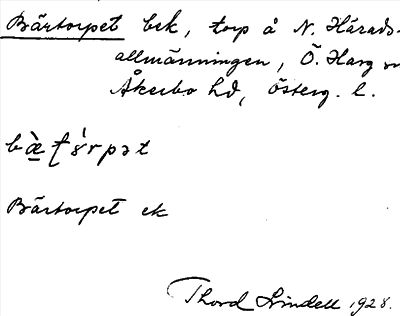 Bärtorpet bek, torp å N. Härads-
allmänningen, Ö. Harg sn
Åkerbo hd, Österg. l.
Bärtorpet ek
Thord Lindell 1928.